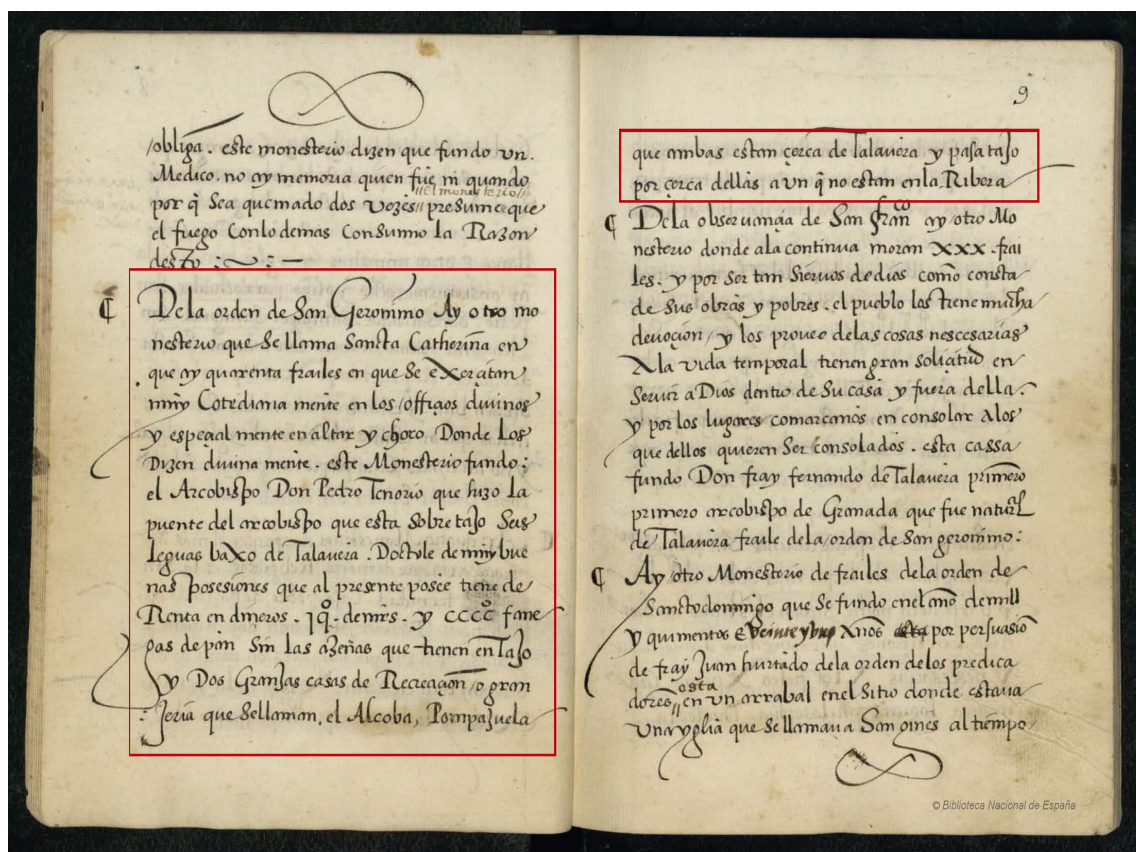 /obligã. este monesterio dizen que fundo vn.
Medico. no ay memoria quien fue ni quando
por q̃ Sea quemado dos vezes // el monesterio // presume que
el fuego Con lo demas Consumio la Razon
desto :~:—
¶ De la orden de San Geronimo Ay otro mo
nesterio que se llama Sancta Catherina en
que ay quarenta frailes en que se exerçitan
muy Cotediana mente en los /offiçios diuinos
y espeçial mente en altar y choro Donde Los
Dizen diuina mente. este Monesterio fundo:
el Arcobispo Don Pedro Tenorio que hizo La
puente del arcobispo que esta sobre tajo Seis
leguas baxo de Talauera. Doctole de muy bue
nas posesiones que al presente posee tiene de
Renta en dineros. 1qº. de mrs. y ccccº fane
gas de pan Sin las azeñas que tienen en Tajo
y Dos Granjas casas de Recreaçion /o gran
jeria que se llaman, el Alcoba, Pompajuela
9
que ambas estan çerca de Talauera y pasa tajo
por çerca dellas a vn q̃ no estan en la Ribera
¶ De la obseruançia de San franco ay otro Mo
nesterio donde a la continua moran xxx. frai
les. y por ser tan Sieruos de dios como consta
de sus obras y pobres. el pueblo los tiene mucha
deuoçion / y los prouee de las cosas nescesarias
A la vida temporal tienen gran soliçitud en
Seruir a Dios dentro de Su casa y fuera della.
y por los lugares comarcanos en consolar A los
que dellos quieren Ser consolados. esta cassa
fundo Don fray fernando de Talauera primero
primero arcobispo de Granada que fue natural
de Talauera fraile de la /orden de San geronimo:
¶ Ay /otro Monesterio de frailes de la orden de
Sancto domingo que se fundo en el año de mill
y quinientos E veinte y vno Años esta por persuasiõ
de fray Juan hurtado de la orden de los predica
dores // esta en vn arrabal en el Sitio donde estaua
vna yglia que se llamaua San gines al tiempo
© Biblioteca Nacional de España